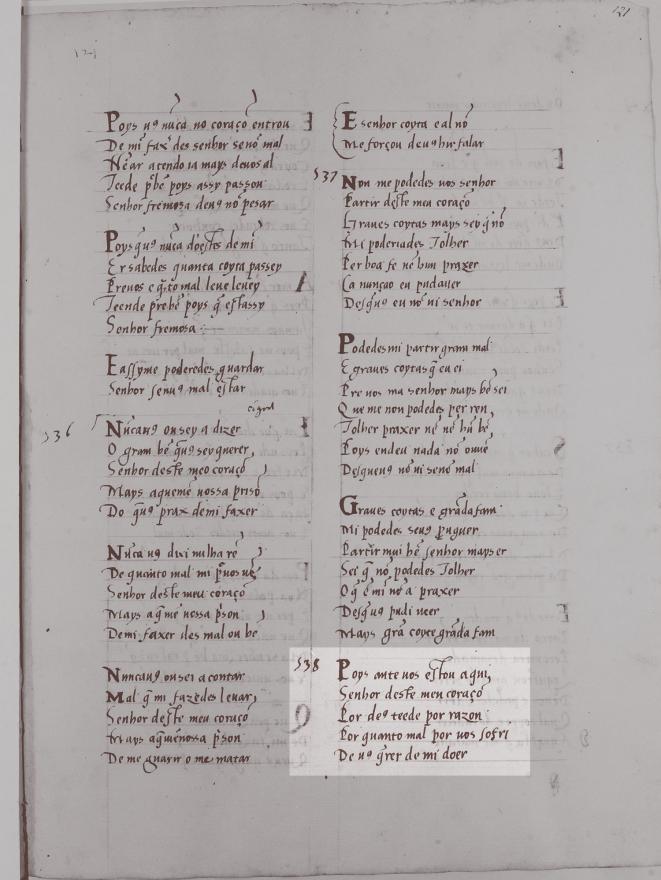 121
121
Poys uꝯ nũca no coraçõ entrou
De mĩ faxʼ des senhor senõ mal
Nẽ ar atendo ia mays de uos al
Teede pʼ bẽ poys assy passou
Senhor fremosa de uꝯ nõ pesar
Poys q̃ uꝯ nũca doestes de mĩ
Er sabedes quanta coyta passey
Por uos e q̃to mal leue leuey
Teende por bẽ poys q̃ est assy
Senhor fremosa
E assy me poderedes guardar
Senhor se nuꝯ mal estar
536
Nũca uꝯ ousey a dizer
O gram bẽ q̃ uꝯ sey querer
Senhor deste meo coraçõ
Mays aq̃ me uossa prisõ
Do q̃ uꝯ prax de mi faxer
Nũca uꝯ dixi nulha rẽ
De quanto mal mi pʼ uos uẽ
Senhor deste meu coraçõ
Mays aq̃ me uossa pʼson
De mi faxer des mal ou bẽ
Nuncauꝯ ousei a contar
Mal q̃ mi fazedes leuar
Senhor deste meu coraçõ
Mays aq̃ uossa pʼson
De me guarir o me matar
E senhor coyta e al nõ
Me forçou de uꝯ hir falar
537
Non me podedes uos senhor
Partir deste meu coraçõ
Graues coytas mays sey q̃ nõ
Mi poderiades Tolher
Per boa fe nẽ hun praxer
Ca nunca o eu pud auer
Des q̃ uꝯ eu nõ ui senhor
Podedes mi partir gram mal
E graues coytas q̃ eu ei
Per uos ma senhor mays bẽ sei
Que me non podedes per ren
Tolher praxer nẽ nẽ hũ bẽ
Poys end eu nada nõ ouue
Des q̃ uꝯ nõ ui senõ mal
Graues coytas e grãd afam
Mi podedes se uꝯ pʼuguer
Partir mui bẽ senhor mays er
Sei q̃ nõ podedes Tolher
O q̃ ẽ mi nõ a praxer
Des q̃ uꝯ pudi ueer
Mays grã coyt e grãd afam
538
Poys ante uos estou aqui
Senhor deste meu coraçõ
Por deꝯ teede por razon
Por quanto mal por uos sofri
De uꝯ q̃rer de mi doer